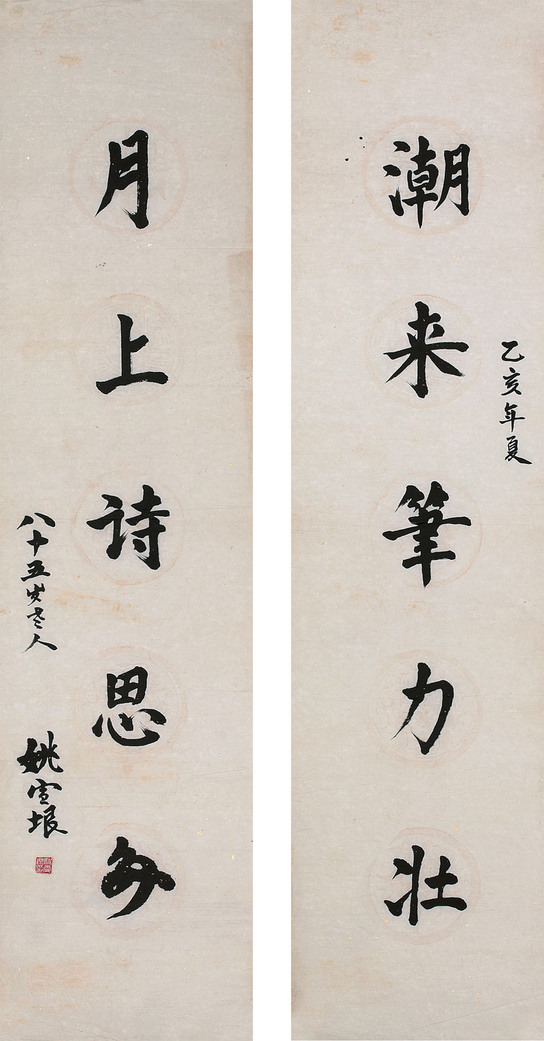 乙亥年夏
潮来筆力壮
月上诗思多
八十五岁老人 姚雪垠